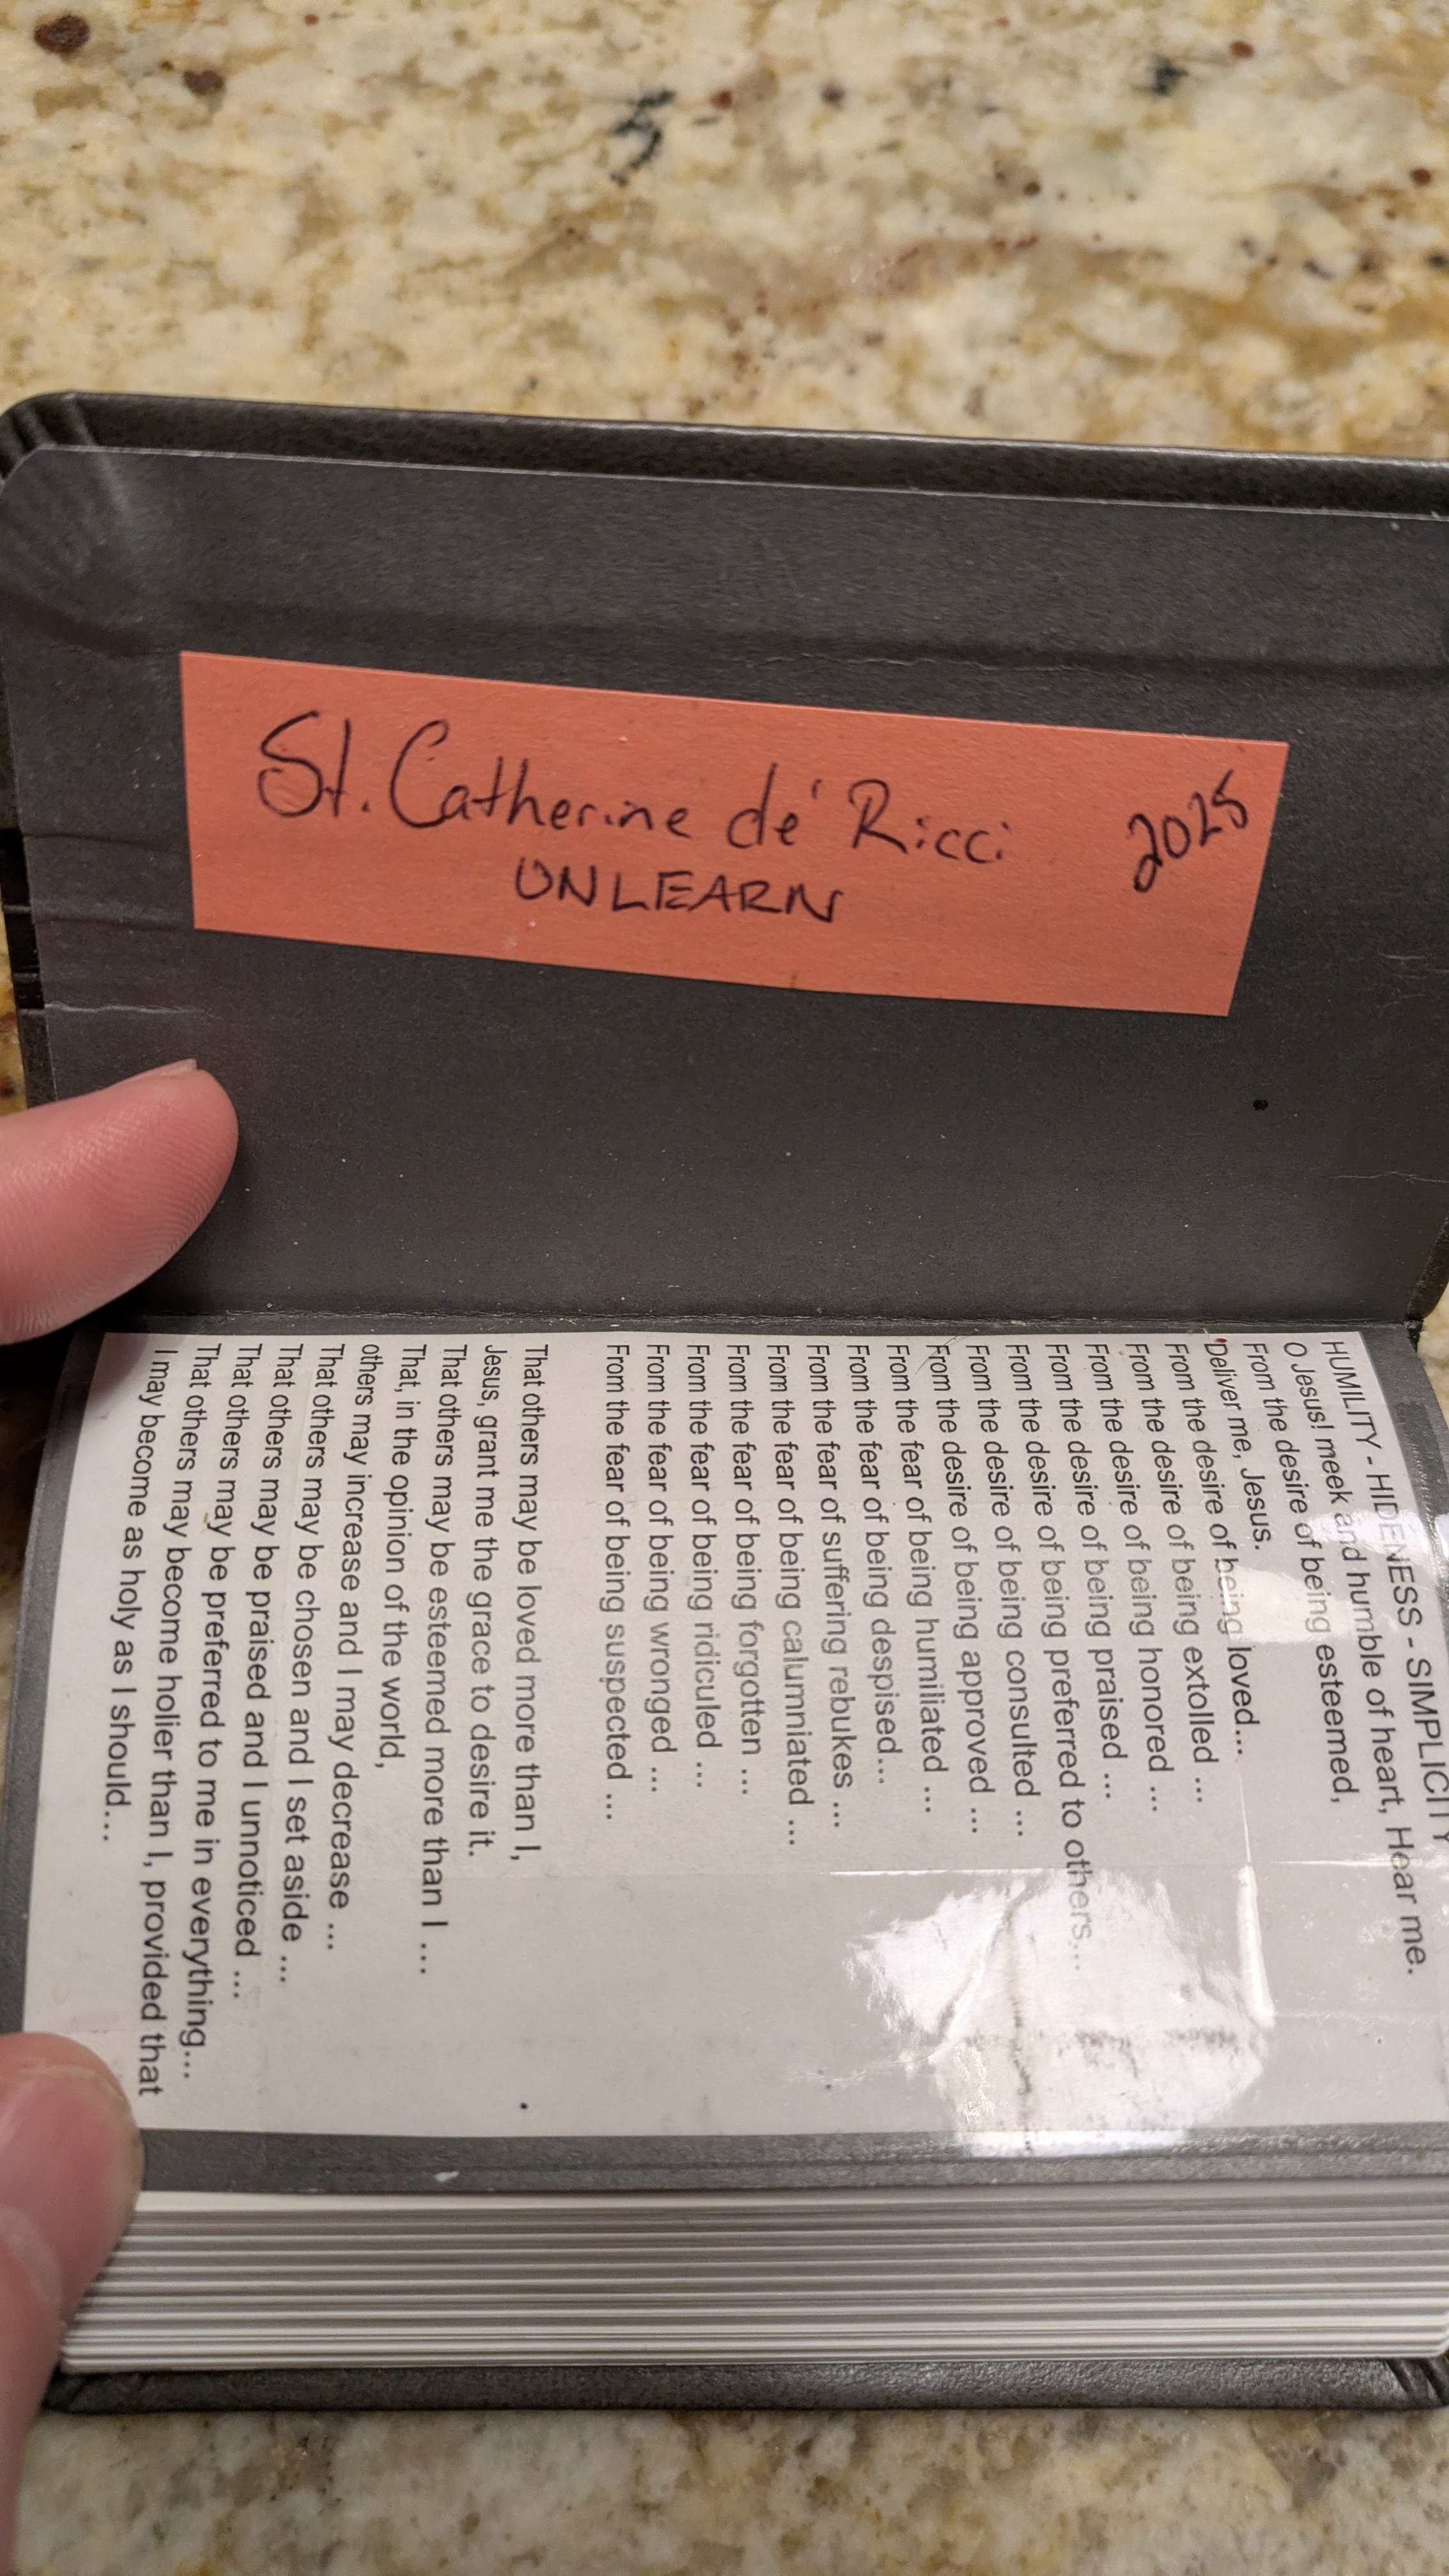 St. Catherine de' Ricci 2025
UNLEARN
HUMILITY - HIDENESS - SIMPLICITY
O Jesus! meek and humble of heart, Hear me.
From the desire of being esteemed,
Deliver me, Jesus.
From the desire of being loved...
From the desire of being extolled ...
From the desire of being honored ...
From the desire of being praised ...
From the desire of being preferred to others...
From the desire of being consulted ...
From the desire of being approved ...
From the fear of being humiliated ...
From the fear of being despised...
From the fear of suffering rebukes ...
From the fear of being calumniated ...
From the fear of being forgotten ...
From the fear of being ridiculed ...
From the fear of being wronged ...
From the fear of being suspected ...
That others may be loved more than I,
Jesus, grant me the grace to desire it.
That others may be esteemed more than I ...
That, in the opinion of the world,
others may increase and I may decrease ...
That others may be chosen and I set aside ...
That others may be praised and I unnoticed ...
That others may be preferred to me in everything...
That others may become holier than I, provided that
I may become as holy as I should...